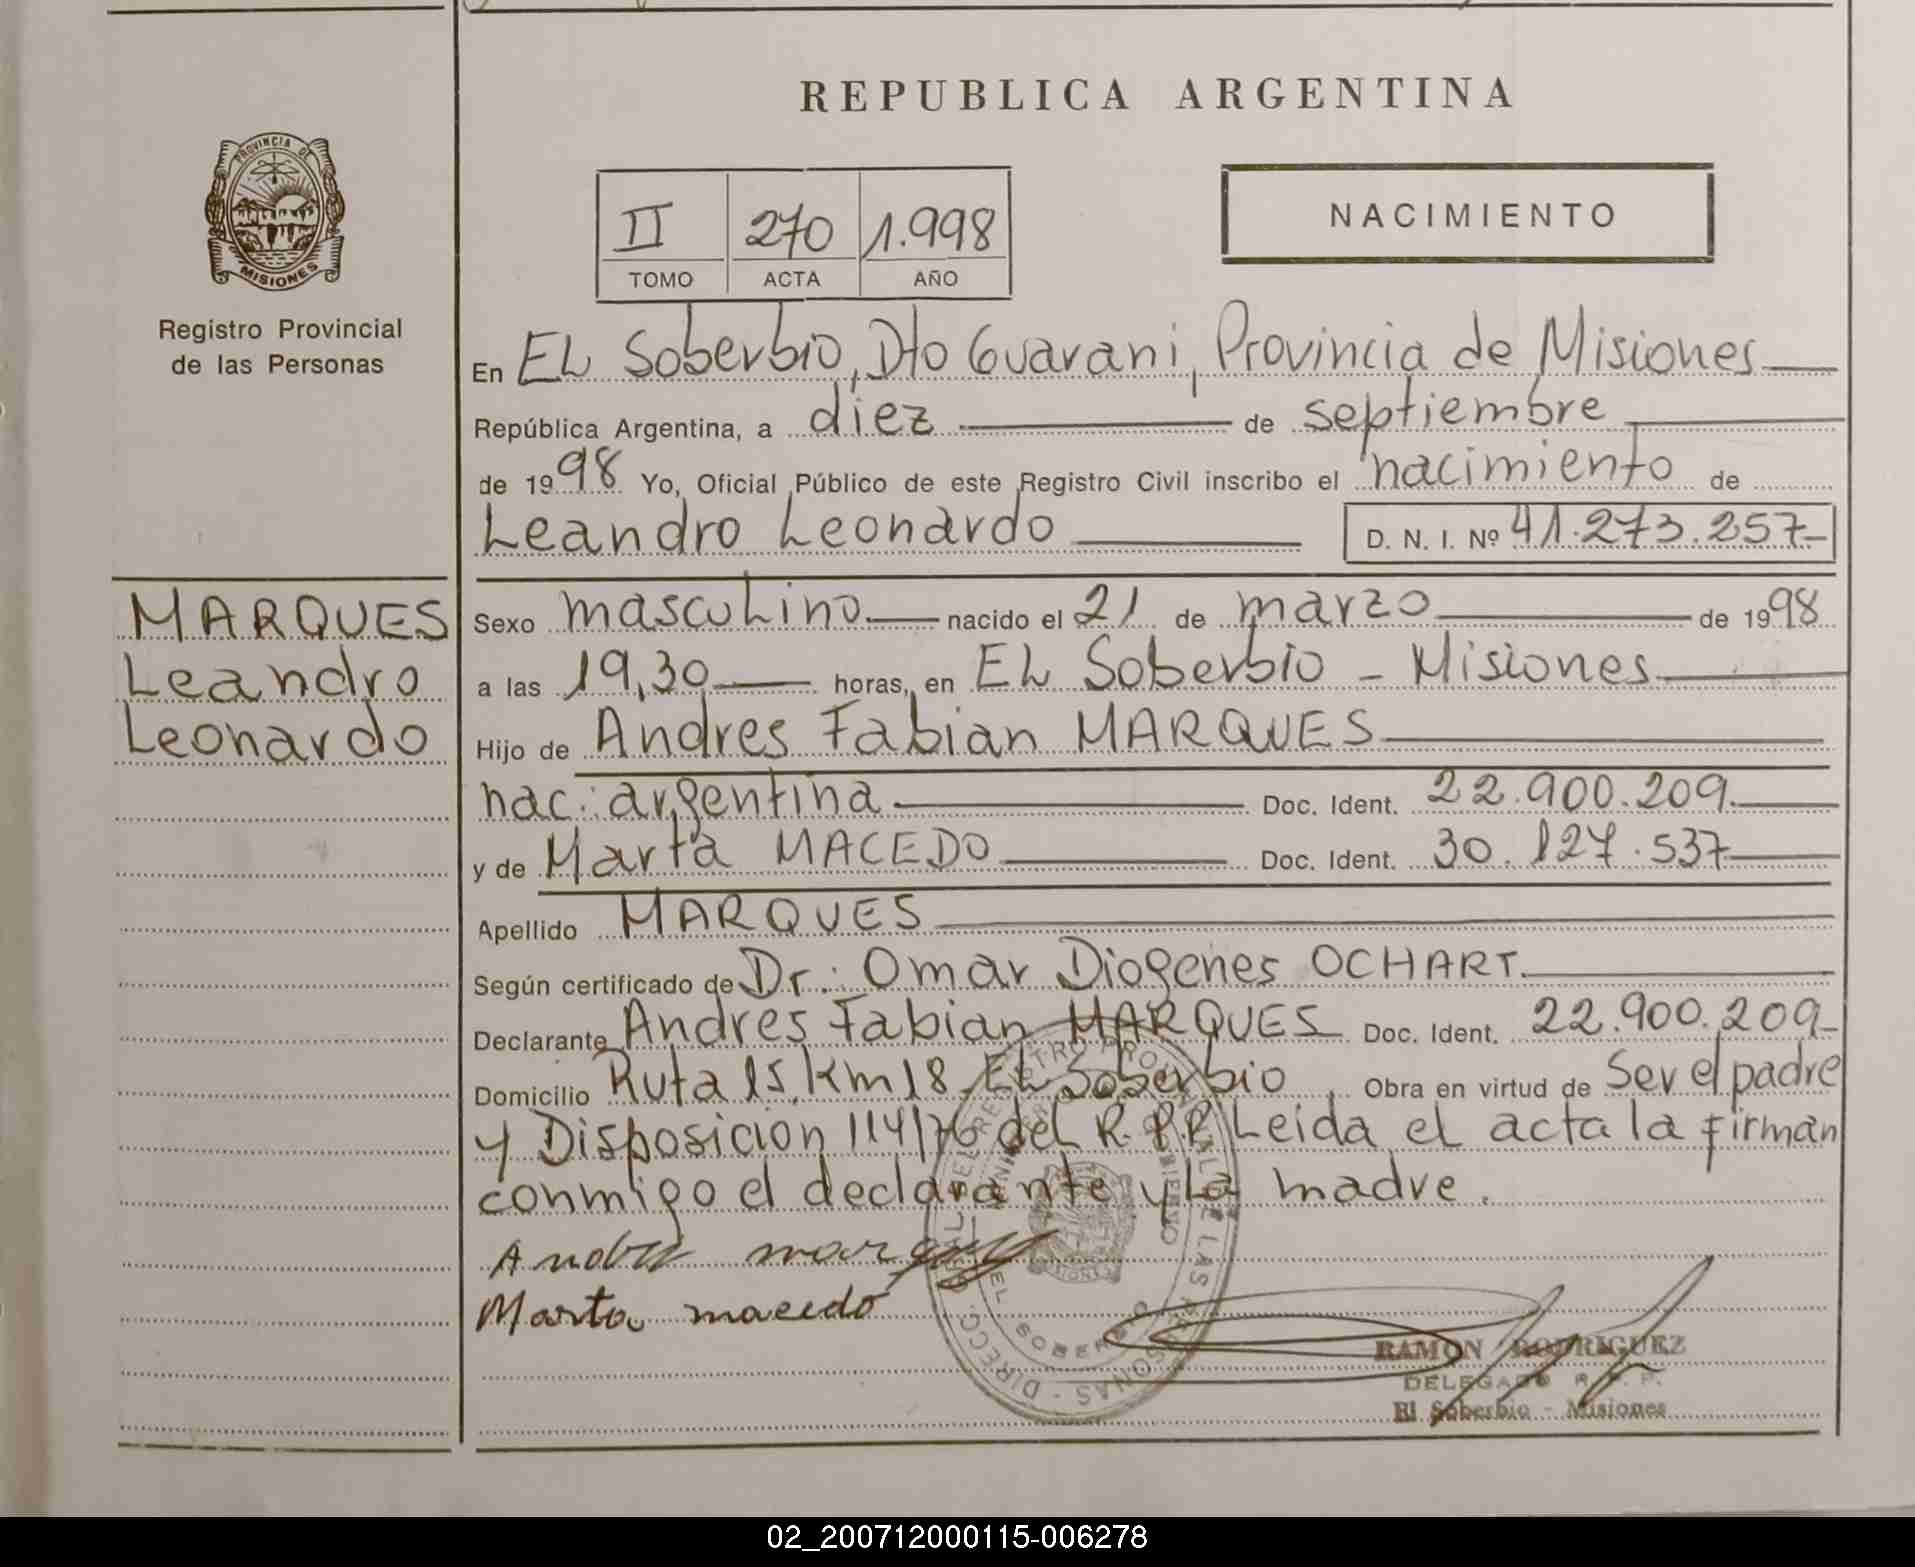 REPUBLICA ARGENTINA
PROVINCIA DE
MISIONES
Registro Provincial
de las Personas
II 270 1.998
TOMO ACTA AÑO
NACIMIENTO
En EL Soberbio, Dto Guarani, Provincia de Misiones
República Argentina, a diez de septiembre
de 1998 Yo, Oficial Público de este Registro Civil inscribo el nacimiento de
Leandro Leonardo D. N. I. Nº 41.273.257-
MARQUES
Leandro
Leonardo
Sexo masculino nacido el 21 de marzo de 1998
a las 19,30 horas, en EL Soberbio - Misiones
Hijo de Andres Fabian MARQUES
nac: argentina Doc. Ident. 22.900.209
y de Marta MACEDO Doc. Ident. 30.127.537
Apellido MARQUES
Según certificado de Dr: Omar Diogenes OCHART.
Declarante Andres Fabian MARQUES Doc. Ident. 22.900.209-
Domicilio Ruta 15, km 18 EL Soberbio Obra en virtud de Ser el padre
y Disposicion 114/76 del R.P.P. Leida el acta la firman
conmigo el declarante y la madre.
Marta macedo
RAMON RODRIGUEZ
DELEGADO R. P. P.
El Soberbio - Misiones
02_200712000115-006278